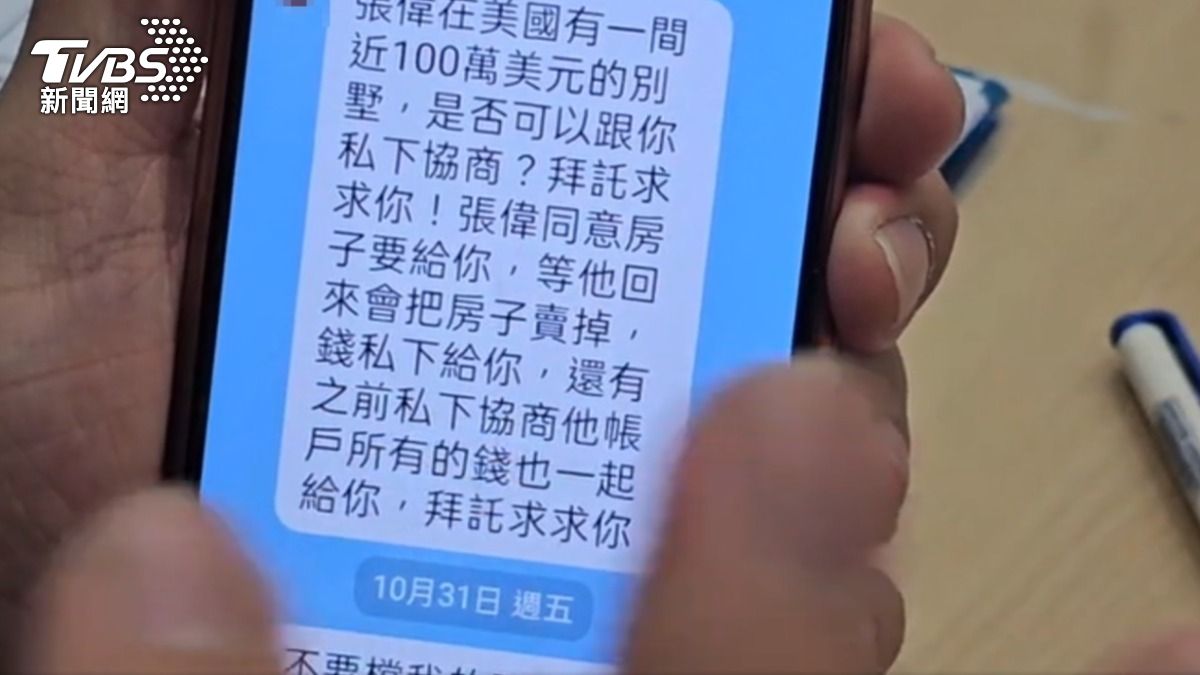 TVBS
新聞網
張偉在美國有一間
近100萬美元的別
墅，是否可以跟你
私下協商？拜託求
求你！張偉同意房
子要給你，等他回
來會把房子賣掉，
錢私下給你，還有
之前私下協商他帳
戶所有的錢也一起
給你，拜託求求你
10月31日 週五
不要擋我的